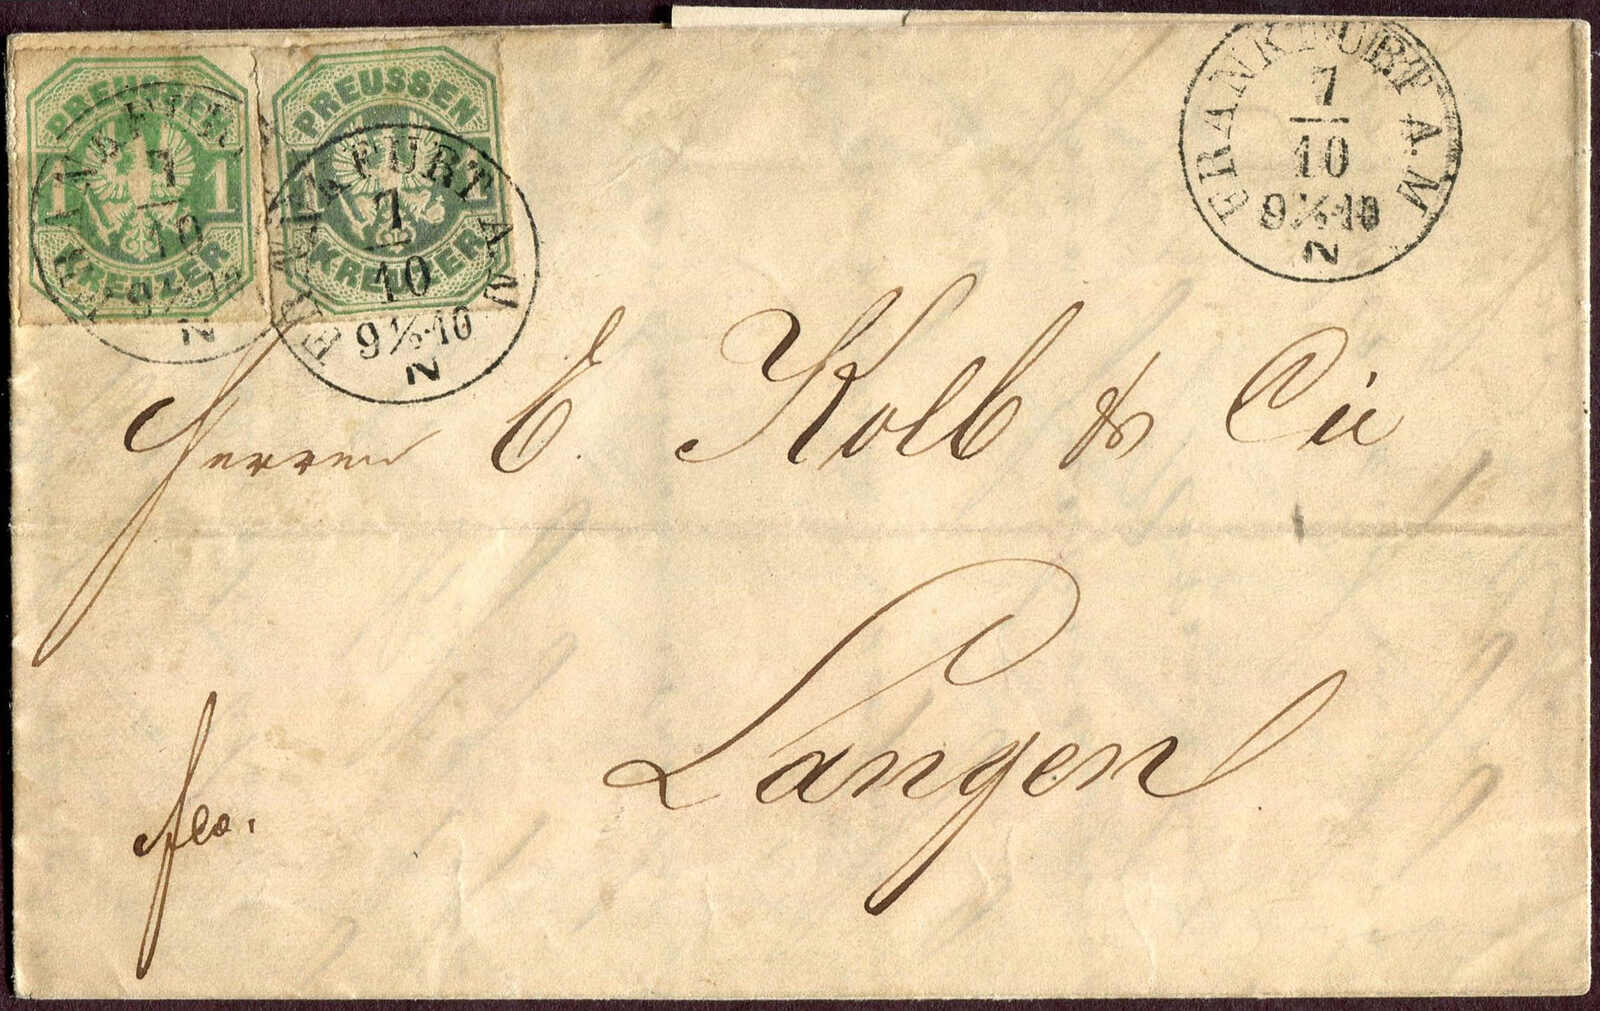 PREUSSEN
1 1
KREUZER
FRANKFURT A.M
7
10
9½-10
N
PREUSSEN
1 1
KREUZER
FRANKFURT A.M
7
10
9½-10
N
FRANKFURT A.M
7
10
9½-10
N
Herren E. Kolb & Cie
Langen
fco.